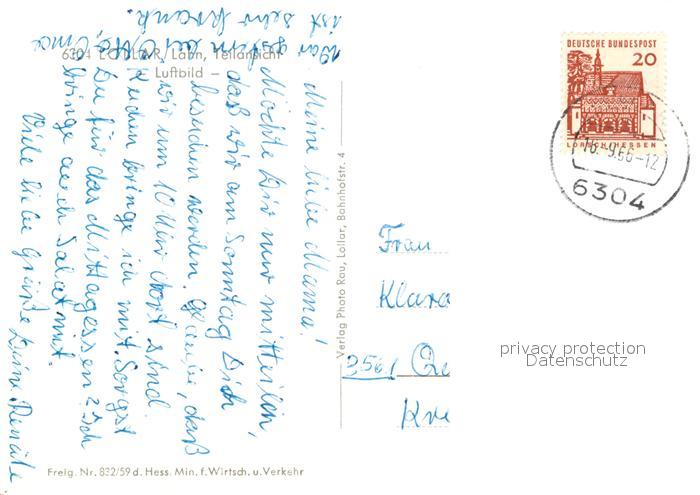 War gestern bei Otto, Oma
ist sehr krank.
6304 LOLLAR/Lahn, Teilansicht
– Luftbild –
Meine liebe Mama!
Möchte Dir nur mitteilen,
daß wir am Sonntag Dich
besuchen werden. daß
wir um 10 Uhr dort sind.
Kuchen bringe ich mit. Sorgst
Du für das Mittagessen? Ich
bringe auch Salat mit.
Viele liebe Grüße Deine Renate
Verlag Photo Rau, Lollar, Bahnhofstr. 4
Freig. Nr. 832/59 d. Hess. Min. f. Wirtsch. u. Verkehr
DEUTSCHE BUNDESPOST
20
LORSCH/HESSEN
16.-9.66-12
6304
Frau
Klara
3561
privacy protection
Datenschutz